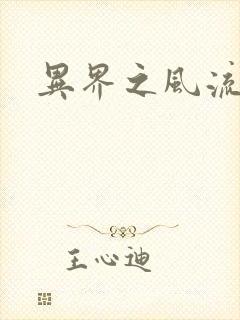 異界之風流
王心迪